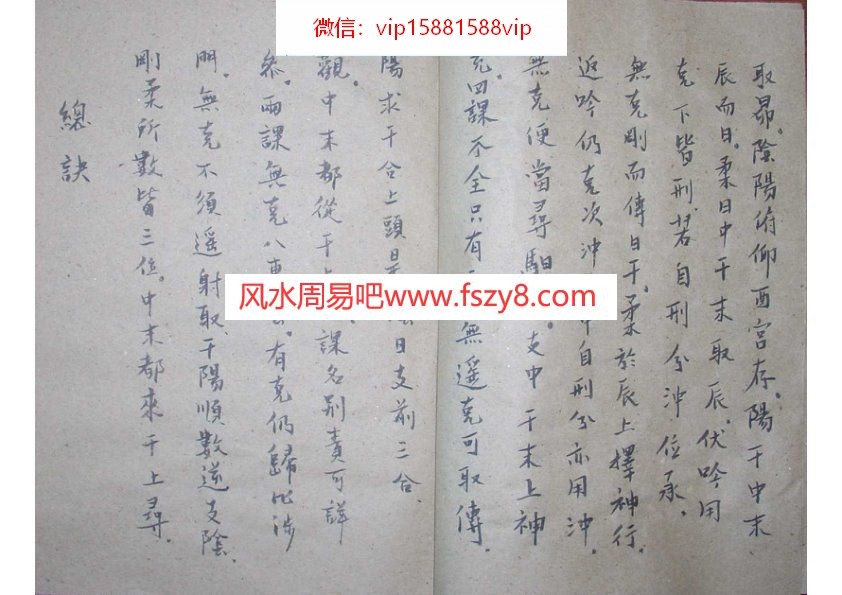 微信：vip15881588vip
取昴。陰陽俯仰酉宫存。陽干中末
辰而日。柔日中干末取辰。伏吟用
克下皆刑。若自刑分冲位承。
無克剛而傳日干。柔於辰上擇神行。
返吟仍克次冲 中自刑分亦用冲。
無克便當尋馹 支中干末上神
克。四課不全只有 無遥克可取傳。
陽求干合上頭 日支前三合。
觀。中末都從干 課名别責可詳
叅。兩課無克八專 有克仍歸比涉
門。無克不須遥射取。干陽順數逆支陰。
剛柔所數皆三位。中末都來干上尋。
總訣
风水周易吧www.fszy8.com